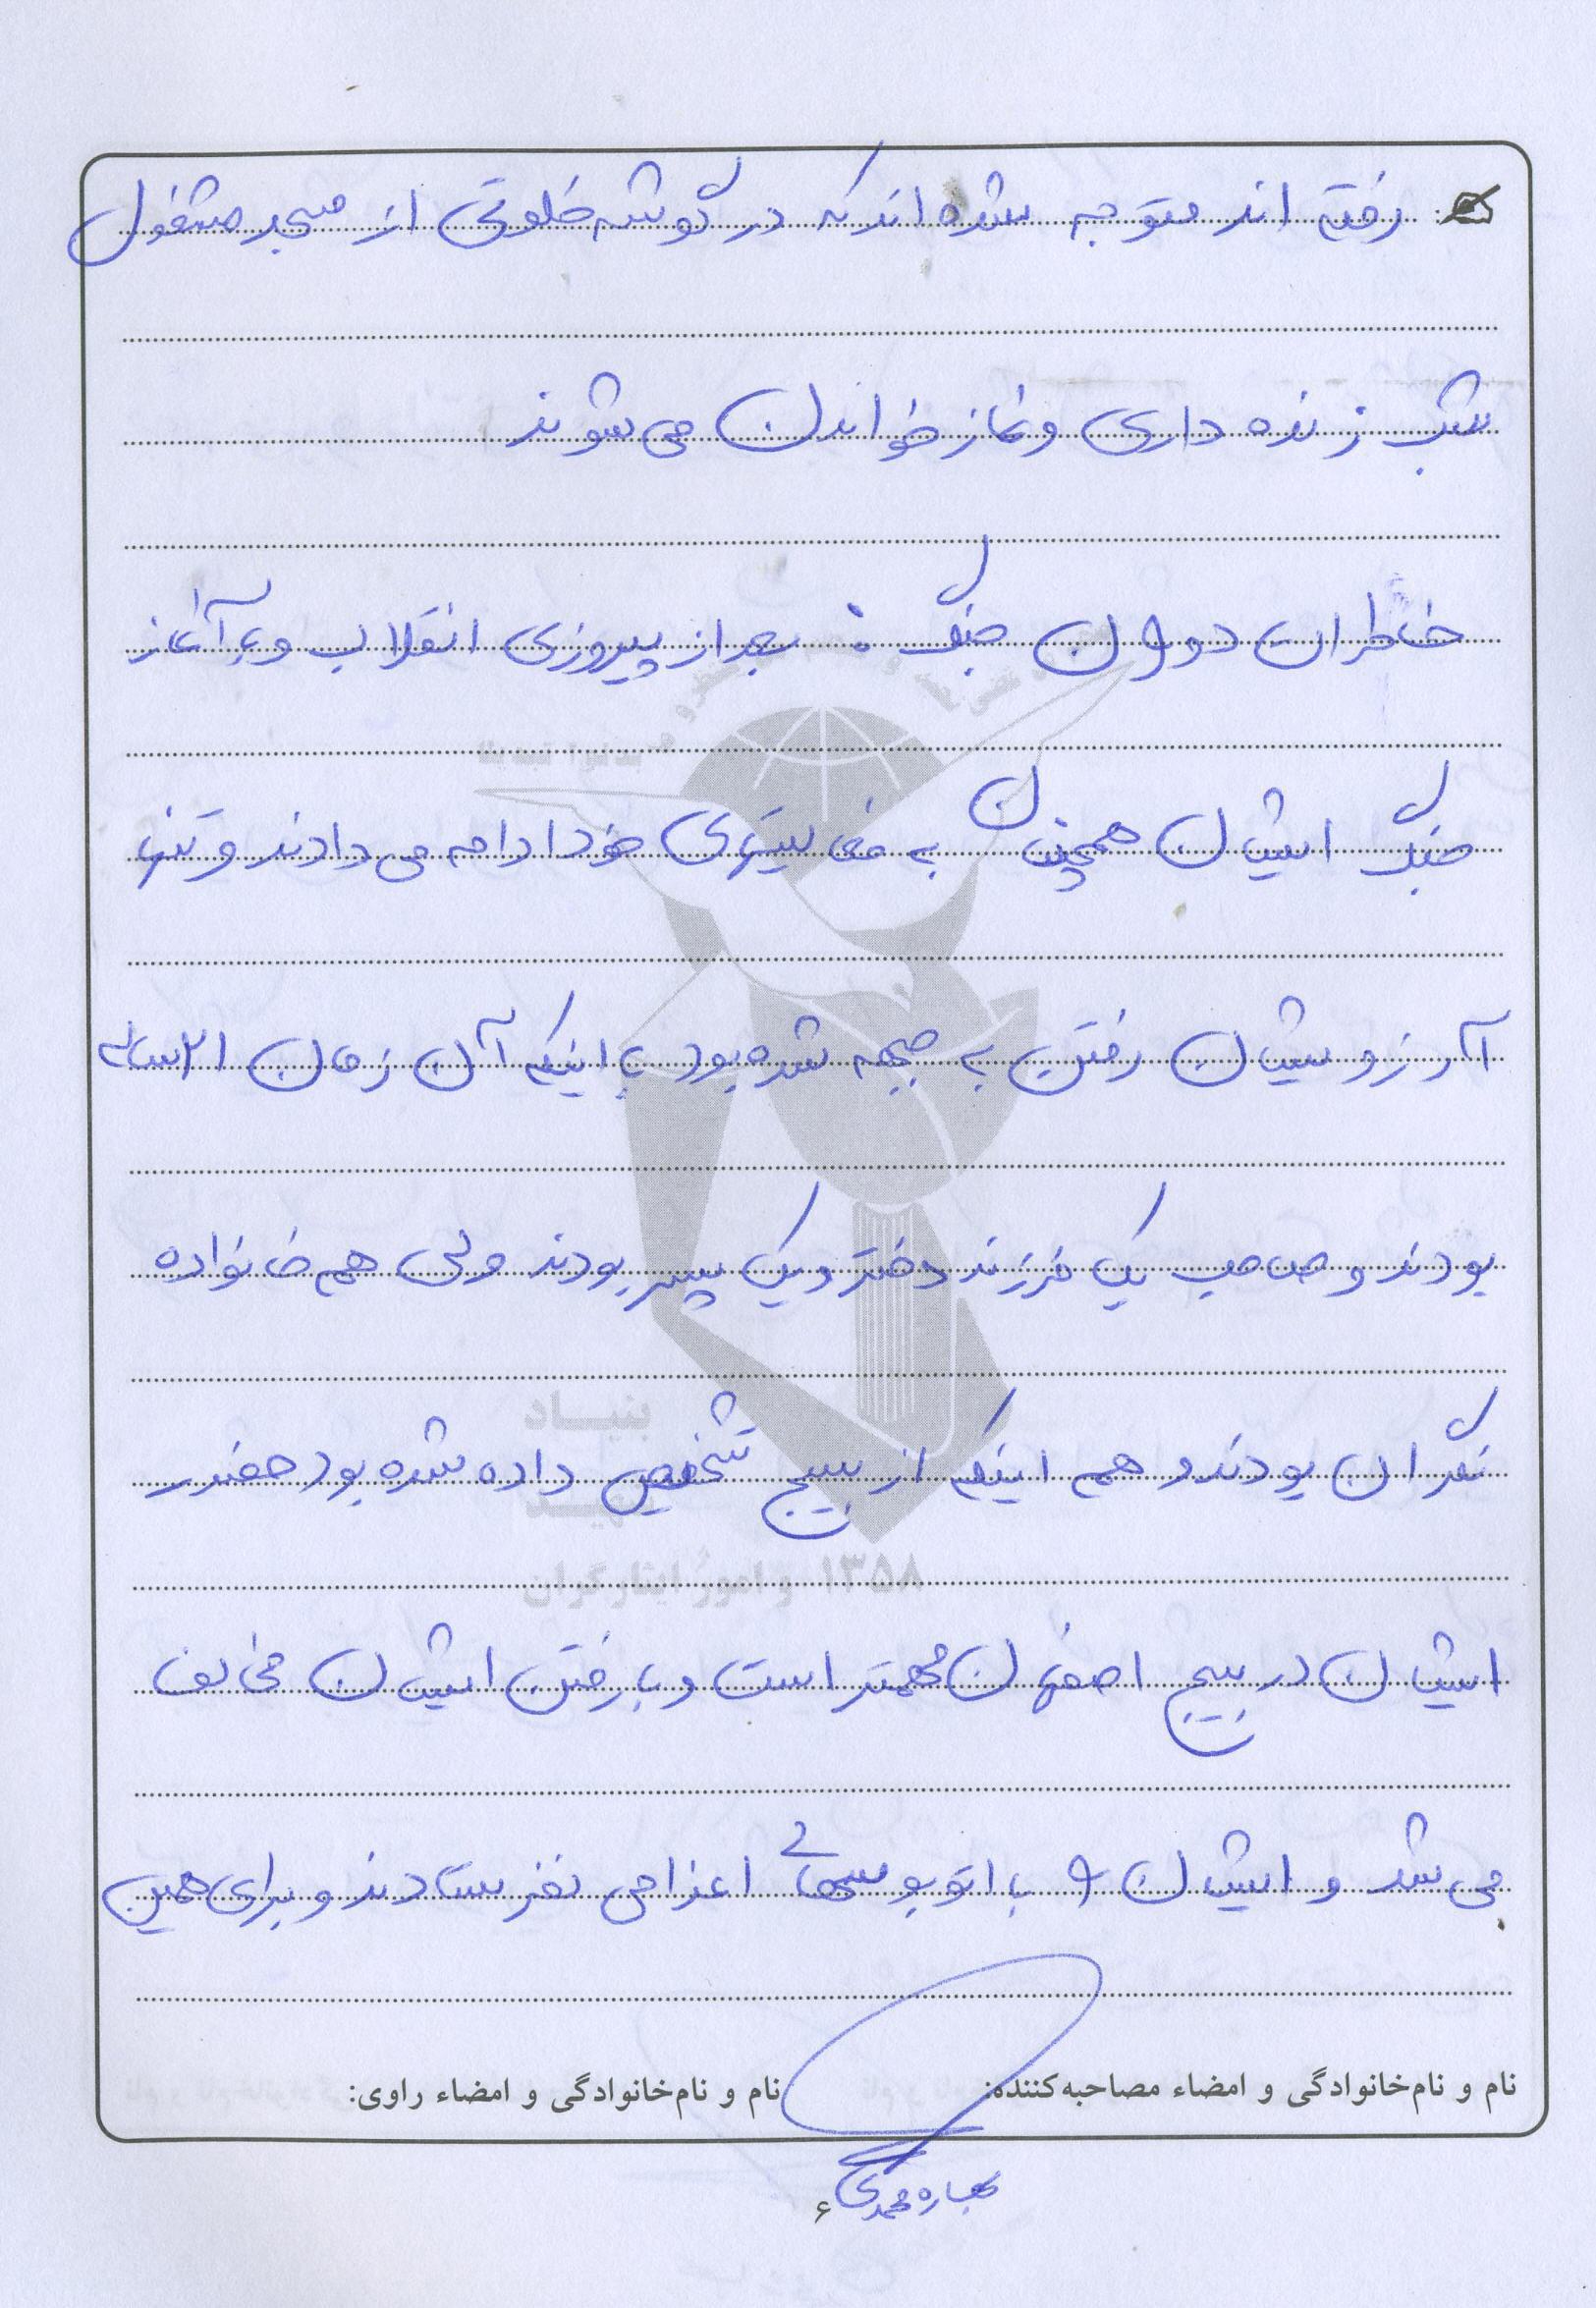 رفته اند متوجه شده اند که در گوشه خلوتی از مسجد مشغول
شب زنده داری و نماز خواندن می شوند
خاطرات دوران جنگ : بعد از پیروزی انقلاب و با آغاز
جنگ ایشان همچنان به فعالیتهای خود ادامه می دادند و تنها
آرزویشان رفتن به جبهه شده بود با اینکه آن زمان ۲۱ ساله
بودند و صاحب یک فرزند دختر و یک پسر بودند ولی هم خانواده
نگران بودند و هم اینکه از بسیج تشخیص داده شده بود حضور
ایشان در بسیج اصفهان مهمتر است و با رفتن ایشان مخالفت
می شد و ایشان را با اتوبوسهای اعزامی نفرستادند و برای همین
نام و نام‌خانوادگی و امضاء مصاحبه‌کننده:
نام و نام‌خانوادگی و امضاء راوی:
بهاره محمدی
۶
بنیاد
شهید
و امور ایثارگران
۱۳۵۸